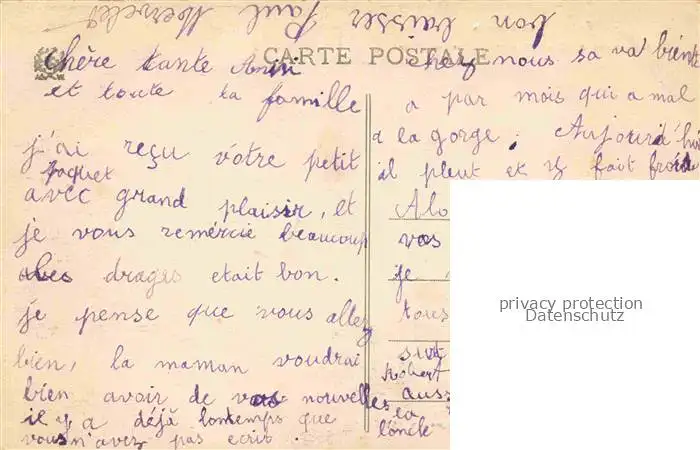 CARTE POSTALE
chère tante
et toute ta famille
j'ai reçu votre petit
paquet
avec grand plaisir, et
je vous remércie beaucoup
drages etait bon.
je pense que vous allez
bien, la maman voudrai
bien avoir de vos nouvelles
il y a déjà lontemps que
vous n'avez pas ecrit.
chez nous sa va bien
a par mois qui a mal
a la gorge. Aujourd'hui
il pleut et il fait froid
Alo
vos
je
tous
sur
Robert
auss
la
l'oncle
bon baiser Paul
privacy protection
Datenschutz